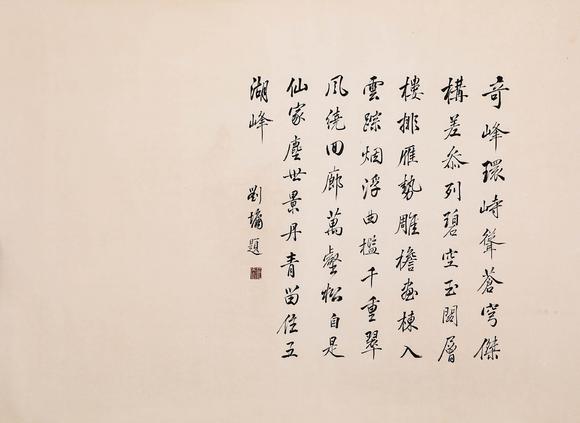 奇峰環峙聳蒼穹傑
構差叅列碧空玉閣層
樓排雁勢雕檐畫棟入
雲踪烟浮曲檻千重翠
風繞回廊萬壑松自是
仙家塵世景丹青留住五
湖峰
劉墉題